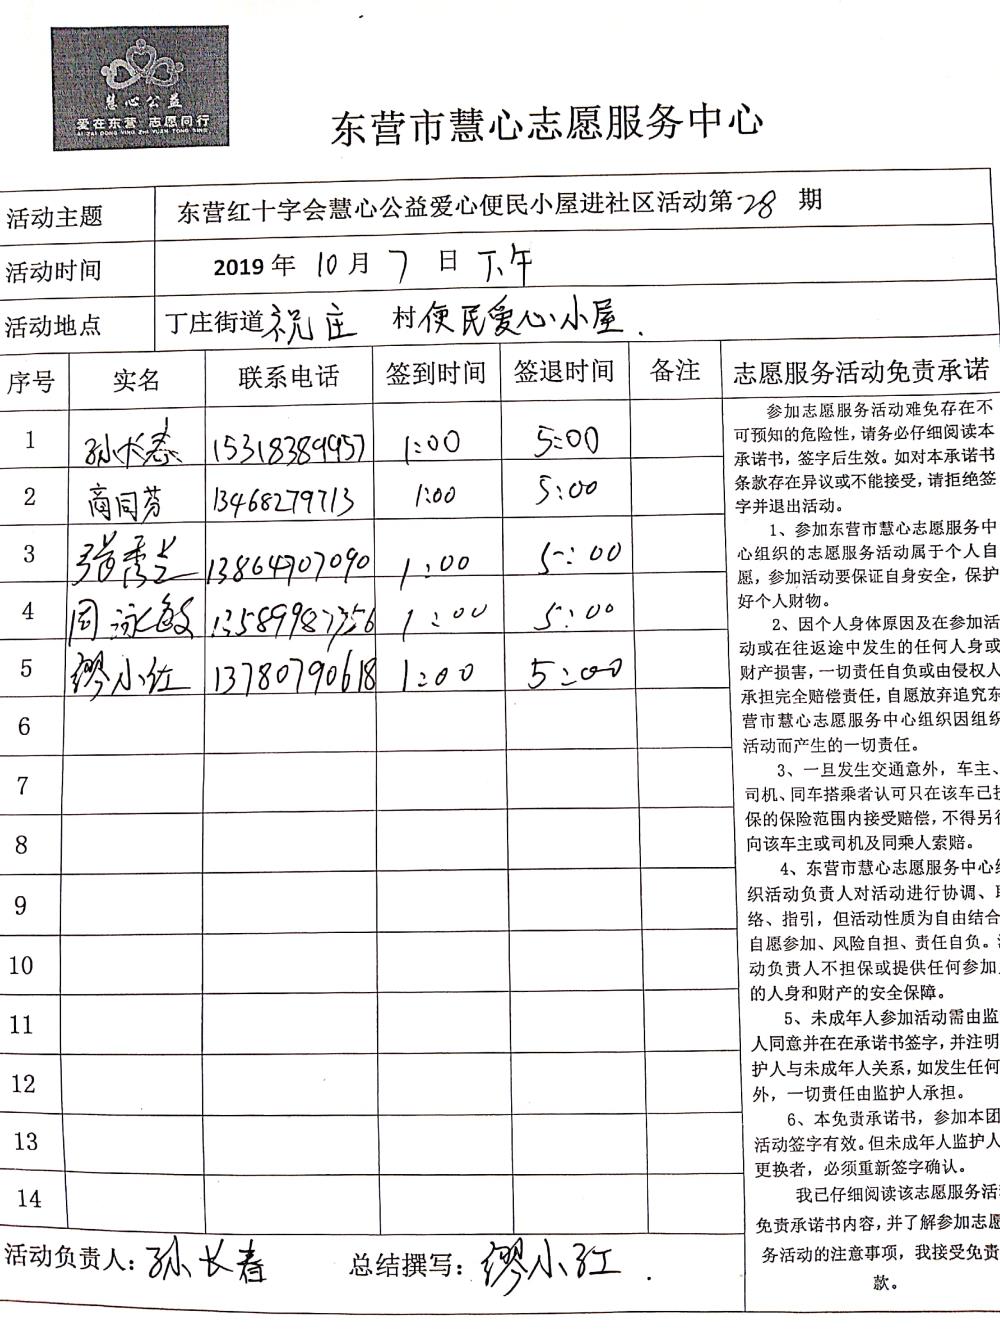 慧心公益
爱在东营 志愿同行
AI ZAI DONG YING ZHI YUAN TONG XING
东营市慧心志愿服务中心
活动主题 东营红十字会慧心公益爱心便民小屋进社区活动第28期
活动时间 2019年10月7日下午
活动地点 丁庄街道祝庄村便民爱心小屋.
序号 实名 联系电话 签到时间 签退时间 备注
1 孙长春 15318389957 1:00 5:00
2 商同芬 13468279713 1:00 5:00
3 张秀兰 13864707090 1:00 5:00
4 周泳敏 13589987356 1:00 5:00
5 缪小红 13780790618 1:00 5:00
6
7
8
9
10
11
12
13
14
活动负责人:孙长春 总结撰写:缪小红.
志愿服务活动免责承诺
参加志愿服务活动难免存在不
可预知的危险性,请务必仔细阅读本
承诺书,签字后生效。如对本承诺书
条款存在异议或不能接受,请拒绝签
字并退出活动。
1、参加东营市慧心志愿服务中
心组织的志愿服务活动属于个人自
愿,参加活动要保证自身安全,保护
好个人财物。
2、因个人身体原因及在参加活
动或在往返途中发生的任何人身或
财产损害,一切责任自负或由侵权人
承担完全赔偿责任,自愿放弃追究东
营市慧心志愿服务中心组织因组织
活动而产生的一切责任。
3、一旦发生交通意外,车主、
司机、同车搭乘者认可只在该车已投
保的保险范围内接受赔偿,不得另行
向该车主或司机及同乘人索赔。
4、东营市慧心志愿服务中心组
织活动负责人对活动进行协调、联
络、指引,但活动性质为自由结合
自愿参加、风险自担、责任自负。活
动负责人不担保或提供任何参加人
的人身和财产的安全保障。
5、未成年人参加活动需由监
人同意并在在承诺书签字,并注明
护人与未成年人关系,如发生任何
外,一切责任由监护人承担。
6、本免责承诺书,参加本团
活动签字有效。但未成年人监护人
更换者,必须重新签字确认。
我已仔细阅读该志愿服务活
免责承诺书内容,并了解参加志愿
务活动的注意事项,我接受免责
款。